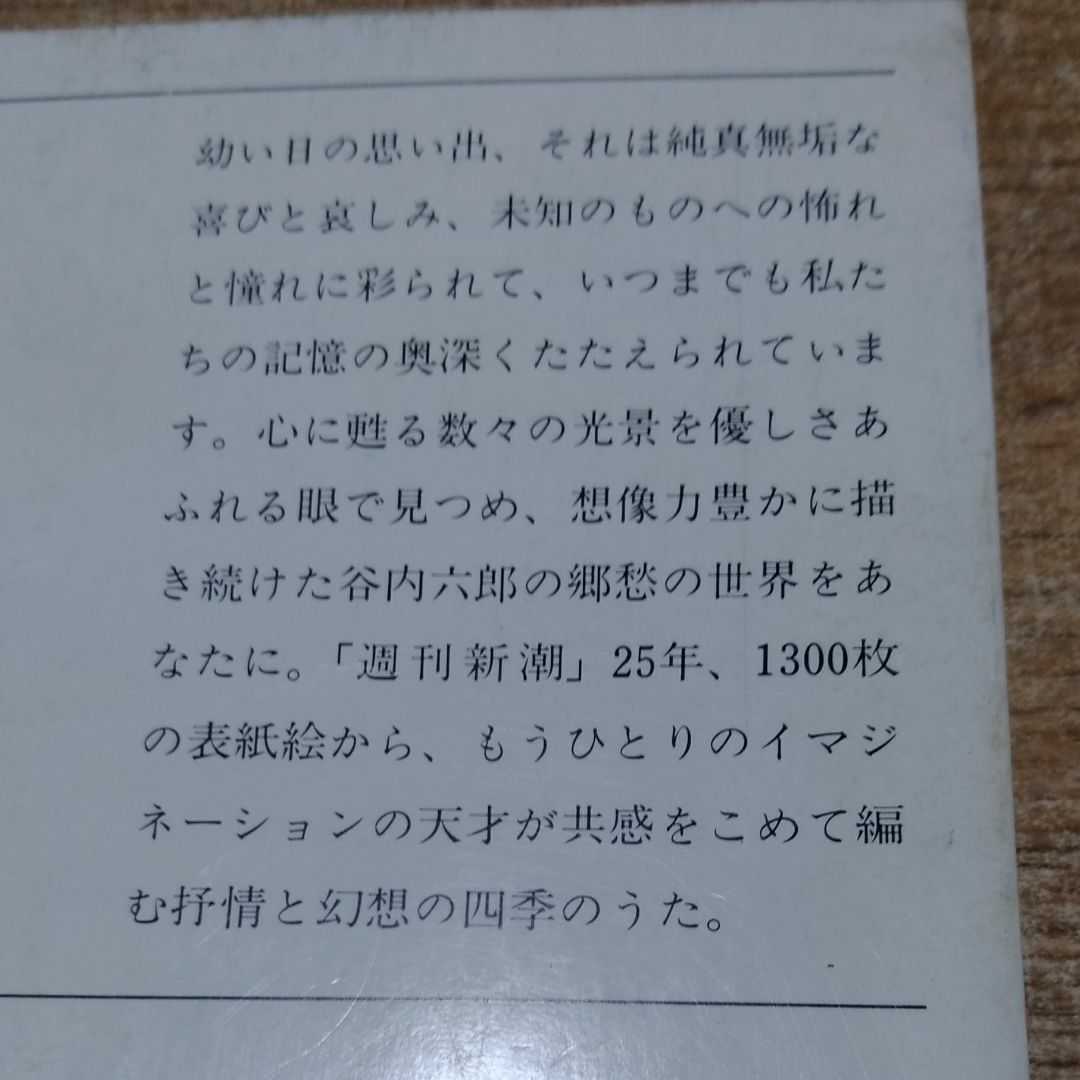 幼い日の思い出、それは純真無垢な
喜びと哀しみ、未知のものへの怖れ
と憧れに彩られて、いつまでも私た
ちの記憶の奥深くたたえられていま
す。心に甦る数々の光景を優しさあ
ふれる眼で見つめ、想像力豊かに描
き続けた谷内六郎の郷愁の世界をあ
なたに。「週刊新潮」25年、1300枚
の表紙絵から、もうひとりのイマジ
ネーションの天才が共感をこめて編
む抒情と幻想の四季のうた。